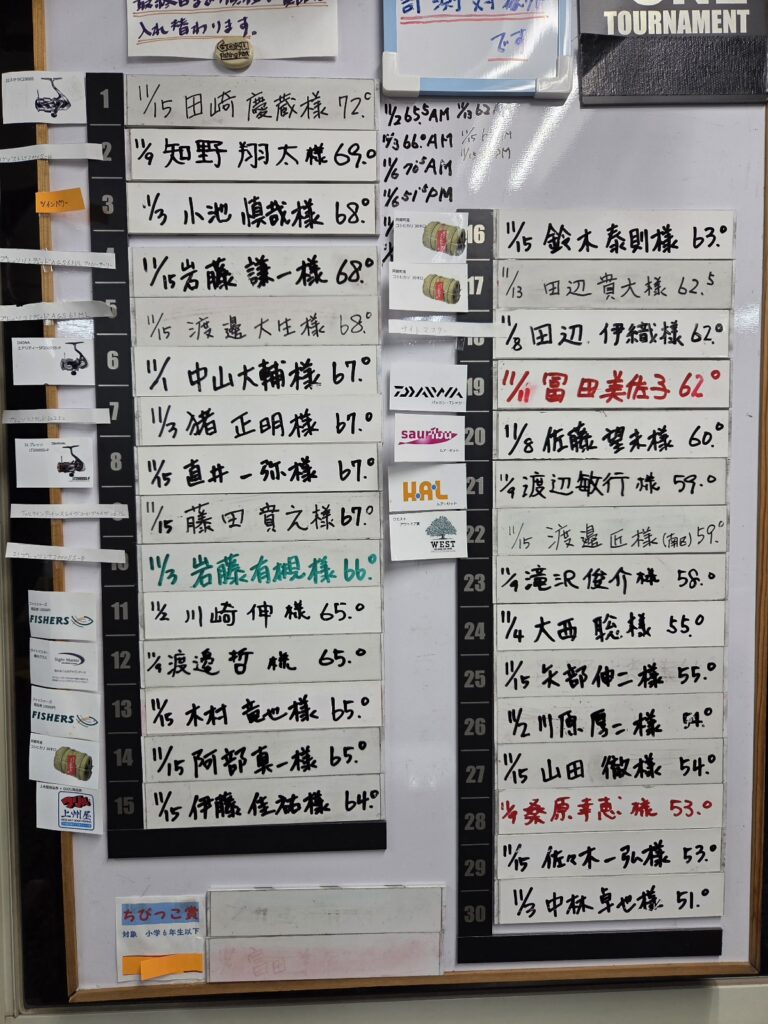 入れ替わります。
です
TOURNAMENT
1 11/15 田崎 慶蔵様 72.0
2 11/9 知野 翔太様 69.0
3 11/3 小池 慎哉様 68.0
ツインパワー
11/15 岩藤 謙一様 68.0
5 11/15 渡邉大生様 68.0
6 11/1 中山大輔様 67.0
7 11/3 猪 正明様 67.0
8 11/15 直井一弥様 67.0
11/15 藤田貴之様 67.0
11/3 岩藤有槻様 66.0
11 11/2 川崎伸様 65.0
12 渡邉哲様 65.0
13 11/15 木村竜也様 65.0
14 11/15 阿部真一様 65.0
15 11/15 伊藤佳祐様 64.0
FISHERS
FISHERS
上州屋
11/2 65.5 AM
11/3 66.0 AM
11/6 70.5 AM
11/6 51.5 PM
16 11/15 鈴木泰則様 63.0
17 11/13 田辺貴大様 62.5
11/8 田辺 伊織様 62.0
19 11/11 冨田美佐子 62.0
20 11/8 佐藤望未様 60.0
21 11/9 渡辺敏行様 59.0
22 11/15 渡邉匠様 59.0
23 11/9 滝沢俊介様 58.0
24 11/4 大西 聡様 55.0
25 11/15 矢部伸二様 55.0
26 11/2 川原厚二様 54.0
27 11/15 山田 徹様 54.0
28 11/9 桑原幸恵様 53.0
29 11/15 佐々木一弘様 53.0
30 11/3 中林卓也様 51.0
サイトマスター
DAIWA
sauribu
HAL
WEST
ちびっこ賞
対象 小学6年生以下